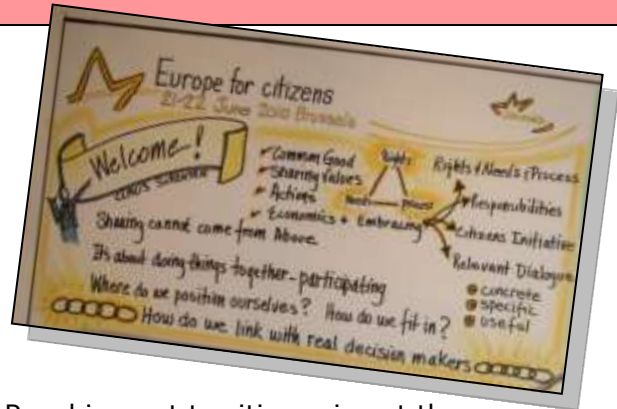 Europe for citizens
21-22 June 2010 Brussels
Welcome!
Common Good
Sharing Values
Actions
Economics + Embracing
Rights
Needs
Process
Rights + Needs + Process
Responsibilities
Citizens Initiative
Relevant Dialogue
concrete
specific
useful
Sharing cannot come from Above
It's about doing things together - participating
Where do we position ourselves? How do we fit in?
How do we link with real decision makers